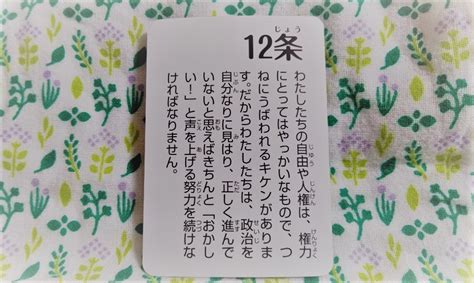 12条
わたしたちの自由や人権は、権力
にとってはやっかいなもので、つ
ねにうばわれるキケンがありま
す。だからわたしたちは、政治を
自分なりに見はり、正しく進んで
いないと思えばきちんと「おかし
い!」と声を上げる努力を続けな
ければなりません。